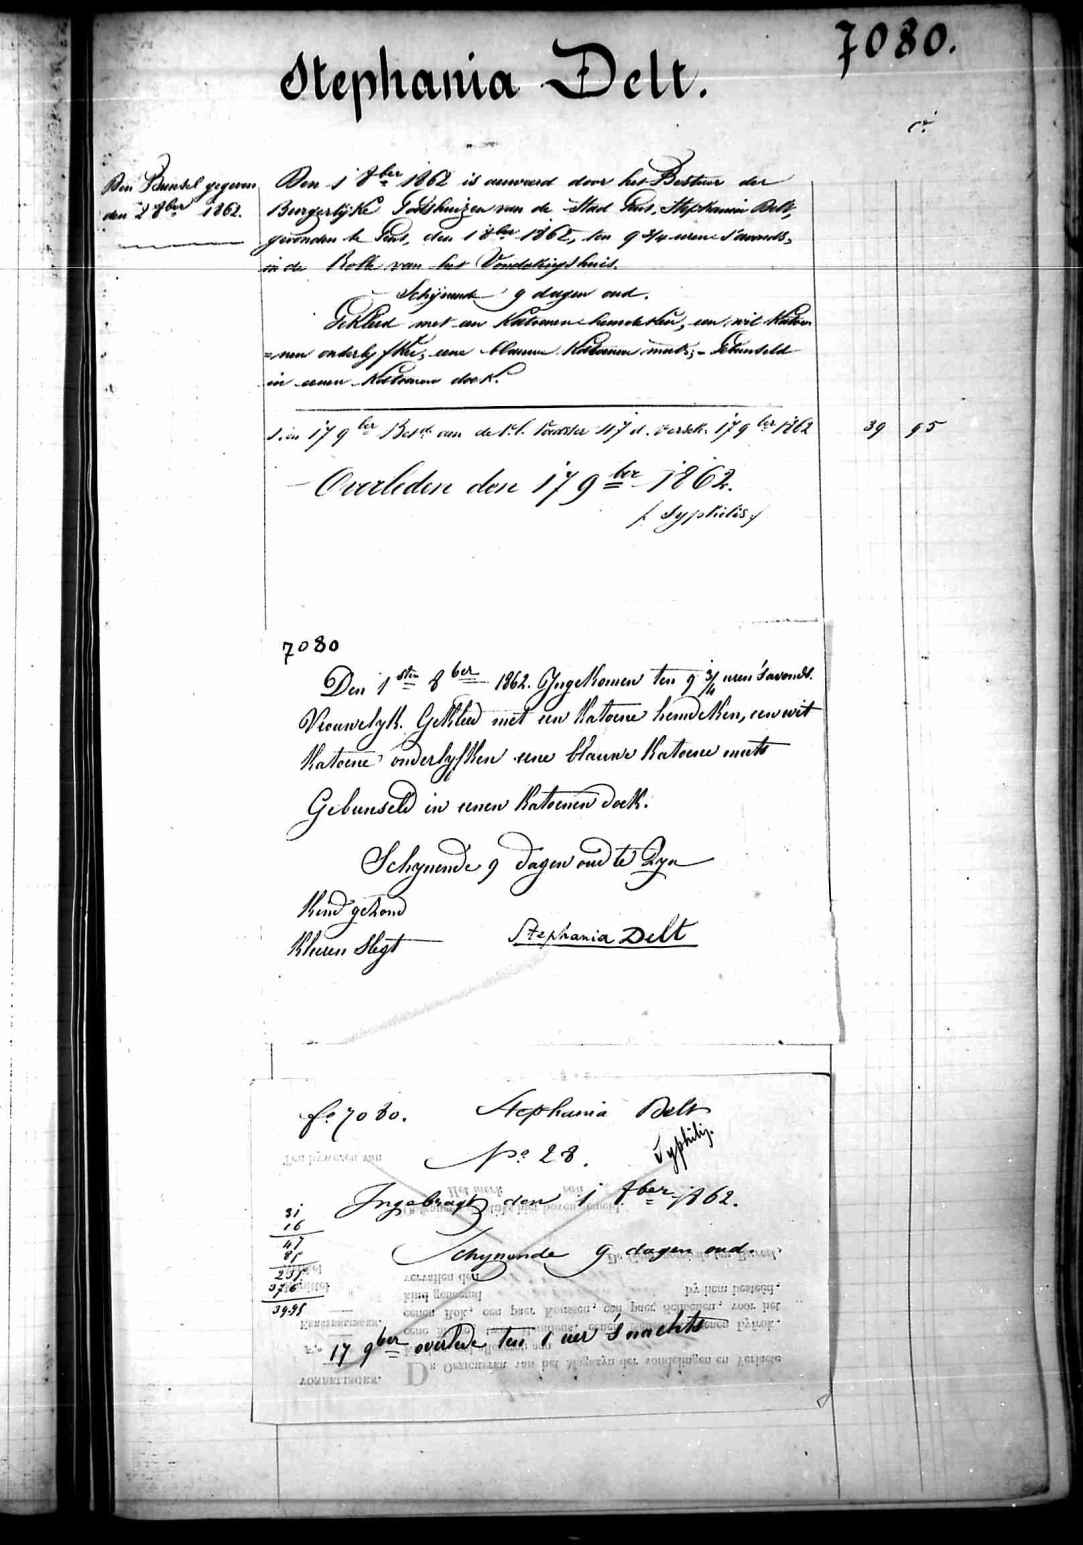 7080.
Stephania Delt.
Den Bunsel gegeven
den 2 8ber 1862.
Den 1 8ber 1862 is aenveerd door het Bestuur der
Burgerlijke Godshuizen van de Stad Gent, Stephania Delt,
gevonden te Gent, den 1 8ber 1862, ten 9 3/4 uren s'avonds,
in de Rolle van het Vondelingshuis.
Schijnende 9 dagen oud.
Gekleed met een Katoenen hemdeken, een wit Katoe-
=nen onderlyfken, eene blauwe Katoenen muts, - Gebunseld
in eenen Katoenen doek.
17 9ber Betd aen de 47 d. 17 9ber 1862 39 95
Overleden den 17 9ber 1862.
(Syphilis)
7080
Den 1ste 8ber 1862. Ingekomen ten 9 3/4 uren s'avonds.
Vrouwelyk. Gekleed met een Katoene hemdeken, een wit
Katoene onderlyfken eene blauwe Katoene muts
Gebunseld in eenen Katoenen doek.
Schynende 9 dagen oud te Zyn
Kind gezond
Kleeren Slegt
Stephania Delt
fo 7080. Stephania Delt
No 28. Syphilis.
Ingebragt den 1 8ber 1862.
Schynende 9 dagen oud.
31
16
47
85
235
376
39.95
17 9ber overlede ten 1 uer 's nachts